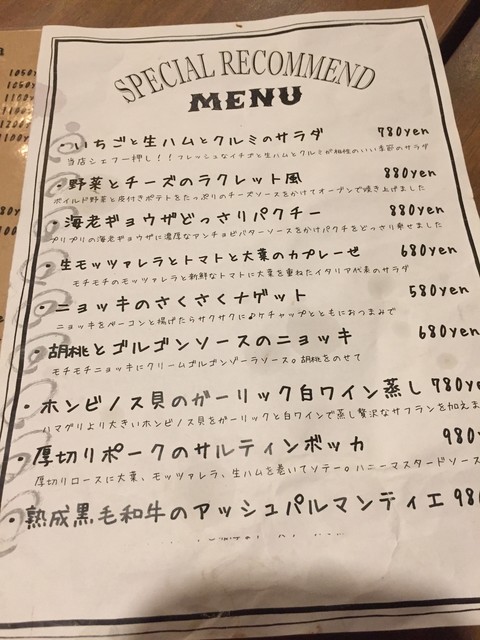 SPECIAL RECOMMEND
MENU
・いちごと生ハムとクルミのサラダ 780yen
当店シェフ一押し!!フレッシュなイチゴと生ハムとクルミが相性のいい季節のサラダ
・野菜とチーズのラクレット風 880yen
ボイルド野菜と皮付きポテトをたっぷりのチーズソースをかけてオーブンで焼き上げました
・海老ギョウザどっさりパクチー 880yen
プリプリの海老ギョウザに濃厚なアンチョビバターソースをかけパクチをどっさり乗せました
・生モッツァレラとトマトと大葉のカプレーゼ 680yen
モチモチのモッツァレラと新鮮なトマトに大葉を重ねたイタリア代表のサラダ
・ニョッキのさくさくナゲット 580yen
ニョッキをベーコンと揚げたらサクサクに♪ケチャップとともにおつまみで
・胡桃とゴルゴンソースのニョッキ 680yen
モチモチニョッキにクリームゴルゴンゾーラソース。胡桃をのせて
・ホンビノス貝のガーリック白ワイン蒸し 780ye
ハマグリより大きいホンビノス貝をガーリックと白ワインで蒸し贅沢なサフランを加えま
・厚切りポークのサルティンボッカ 980
厚切りロースに大葉、モッツァレラ、生ハムを巻いてソテー。ハニーマスタードソース
・熟成黒毛和牛のアッシュパルマンティエ 980